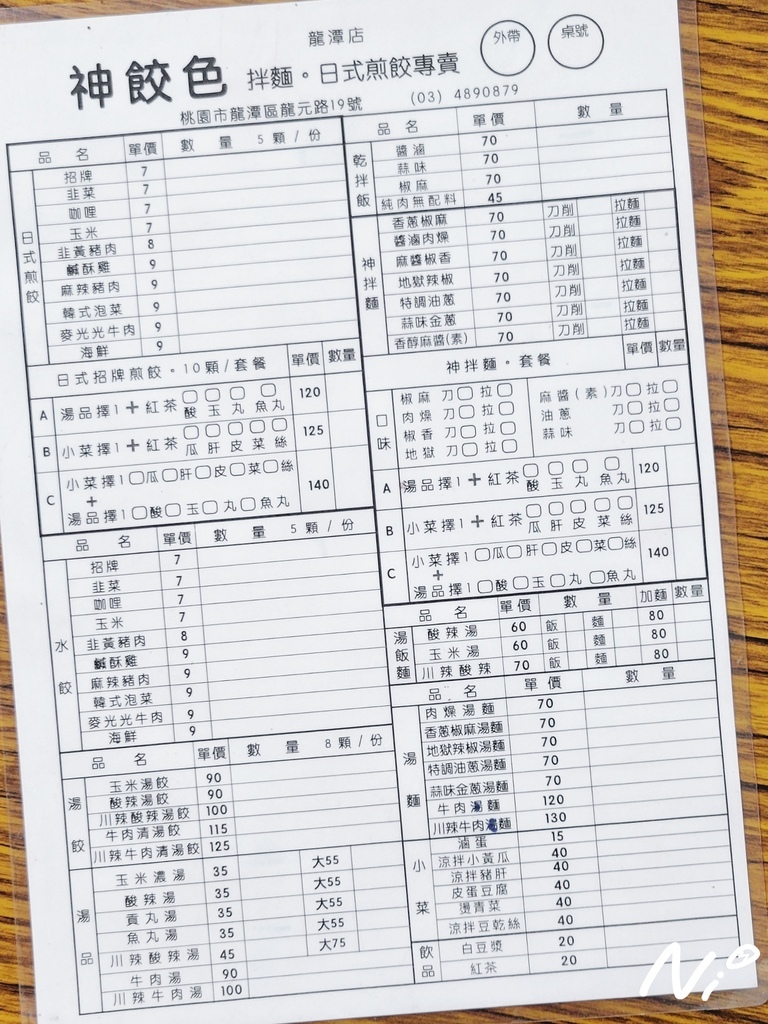 龍潭店
神餃色 拌麵。日式煎餃專賣 外帶 桌號
桃園市龍潭區龍元路19號 (03) 4890879
品名 單價 數量 5顆/份
日式煎餃
招牌 7
韭菜 7
咖哩 7
玉米 7
韭黃豬肉 8
鹹酥雞 9
麻辣豬肉 9
韓式泡菜 9
麥光光牛肉 9
海鮮 9
日式招牌煎餃。10顆/套餐 單價 數量
A 湯品擇1+紅茶 酸 玉 丸 魚丸 120
B 小菜擇1+紅茶 瓜 肝 皮 菜 絲 125
C 小菜擇1 瓜 肝 皮 菜 絲
+
湯品擇1 酸 玉 丸 魚丸 140
品名 數量 5顆/份
水餃
招牌 7
韭菜 7
咖哩 7
玉米 7
韭黃豬肉 8
鹹酥雞 9
麻辣豬肉 9
韓式泡菜 9
麥光光牛肉 9
海鮮 9
品名 單價 數量 8顆/份
湯餃
玉米湯餃 90
酸辣湯餃 90
川辣酸辣湯餃 100
牛肉清湯餃 115
川辣牛肉清湯餃 125
湯品
玉米濃湯 35 大55
酸辣湯 35 大55
貢丸湯 35 大55
魚丸湯 35 大55
川辣酸辣湯 45 大75
牛肉湯 90
川辣牛肉湯 100
品名 單價 數量
乾拌飯
醬滷 70
蒜味 70
椒麻 70
純肉無配料 45
神拌麵
香蔥椒麻 70 刀削 拉麵
醬滷肉燥 70 刀削 拉麵
麻醬椒香 70 刀削 拉麵
地獄辣椒 70 刀削 拉麵
特調油蔥 70 刀削 拉麵
蒜味金蔥 70 刀削 拉麵
香醇麻醬(素) 70 刀削 拉麵
神拌麵。套餐 單價 數量
口味
椒麻 刀 拉 麻醬(素) 刀 拉
肉燥 刀 拉 油蔥 刀 拉
椒香 刀 拉 蒜味 刀 拉
地獄 刀 拉
A 湯品擇1+紅茶 酸 玉 丸 魚丸 120
B 小菜擇1+紅茶 瓜 肝 皮 菜 絲 125
C 小菜擇1 瓜 肝 皮 菜 絲
+
湯品擇1 酸 玉 丸 魚丸 140
品名 單價 數量 加麵 數量
湯飯麵
酸辣湯 60 飯 麵 80
玉米湯 60 飯 麵 80
川辣酸辣 70 飯 麵 80
品名 單價 數量
湯麵
肉燥湯麵 70
香蔥椒麻湯麵 70
地獄辣椒湯麵 70
特調油蔥湯麵 70
蒜味金蔥湯麵 70
牛肉湯麵 120
川辣牛肉湯麵 130
小菜
滷蛋 15
涼拌小黃瓜 40
涼拌豬肝 40
皮蛋豆腐 40
燙青菜 40
涼拌豆乾絲 40
飲品
白豆漿 20
紅茶 20
Ni